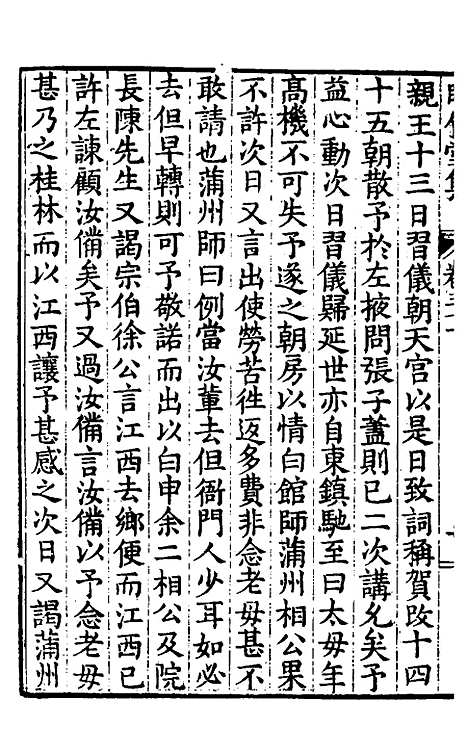 親王十三日習儀朝天宮以是日致詞稱賀改十四
十五朝散予於左掖問張子藎則已二次講允矣予
益心動次日習儀歸延世亦自東鎮馳至曰太母年
高機不可失予遂之朝房以情白館師蒲州相公果
不許次日又言出使勞苦徃返多費非念老母甚不
敢請也蒲州師曰例當汝輩去但衙門人少耳如必
去但早轉則可予敬諾而出以白申余二相公及院
長陳先生又謁宗伯徐公言江西去鄉便而江西已
許左諫顧汝備矣予又過汝備言汝備以予念老母
甚乃之桂林而以江西讓予甚感之次日又謁蒲州